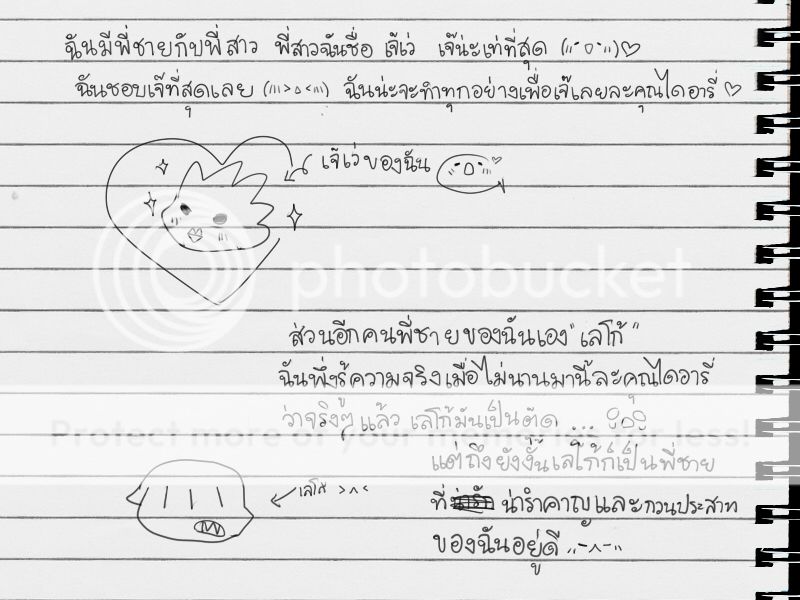 ฉันมีพี่ชายกับพี่สาว พี่สาวฉันชื่อ เจ๊เว่ เจ๊น่ะเท่ที่สุด (,,·o·,,)♡
ฉันชอบเจ๊ที่สุดเลย (,,,>o<,,,) ฉันน่ะจะทำทุกอย่างเพื่อเจ๊เลยละคุณไดอารี่ ♡
เจ๊เว่ของฉัน
photobucket
ส่วนอีกคนพี่ชายของฉันเอง "เลโก้"
ฉันพึ่งรู้ความจริงเมื่อไม่นานมานี้ละคุณไดอารี่
ว่าจริงๆ แล้ว เลโก้มันเป็นตัด...
Protect more of your memories for less!
แต่ถึงยังงั้นเลโก้ก็เป็นพี่ชาย
เลโก้ >^<
ที่ น่ารำคาญและกวนประสาท
ของฉันอยู่ดี ,,-^-,,